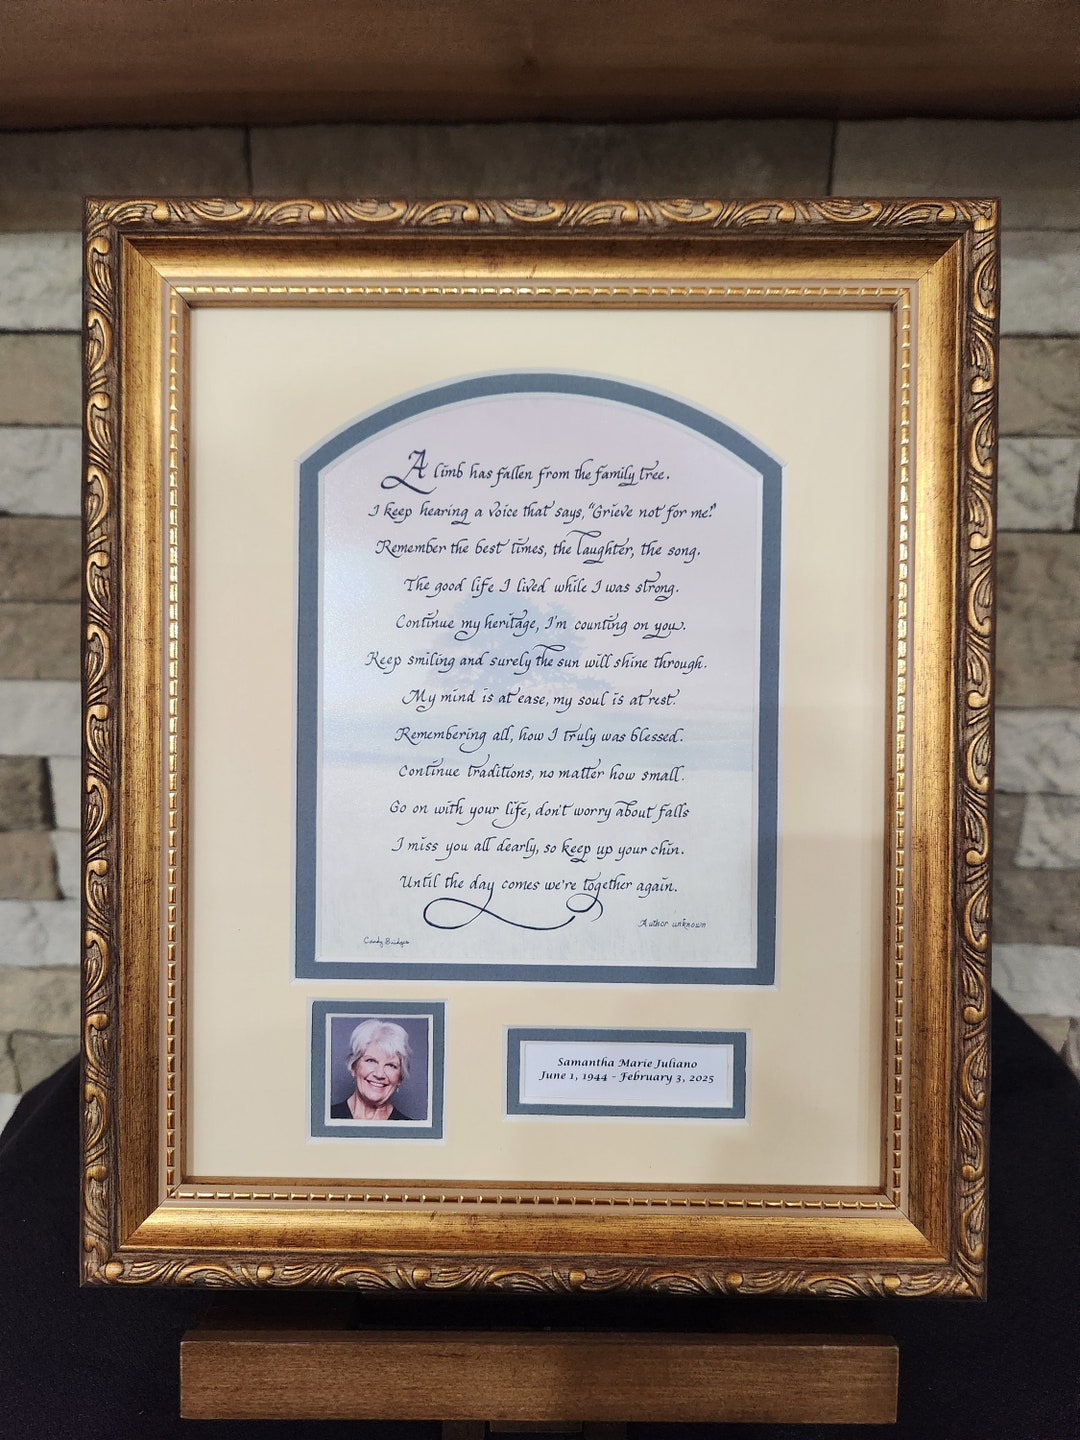 A limb has fallen from the family tree.
I keep hearing a voice that says, "Grieve not for me."
Remember the best times, the laughter, the song.
The good life I lived while I was strong.
Continue my heritage, I'm counting on you.
Keep smiling and surely the sun will shine through.
My mind is at ease, my soul is at rest.
Remembering all, how I truly was blessed.
Continue traditions, no matter how small.
Go on with your life, don't worry about falls
I miss you all dearly, so keep up your chin.
Until the day comes we're together again.
Author unknown
Candy Bridges
Samantha Marie Juliano
June 1, 1944 - February 3, 2025